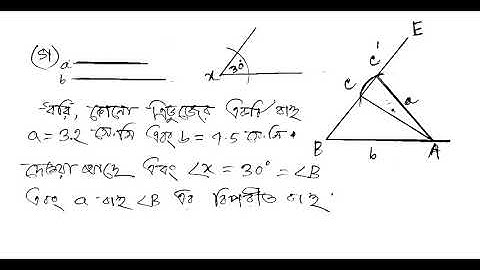 (গ) a
b
x 30°
ধরি, কোনো ত্রিভুজের একটি বাহু
a = 3.2 সে.মি এবং b = 4.5 সে.মি.
দেওয়া আছে এবং ∠x = 30° = ∠B
এবং a বাহু ∠B এর বিপরীত বাহু .
E
C'
C
a
B b A